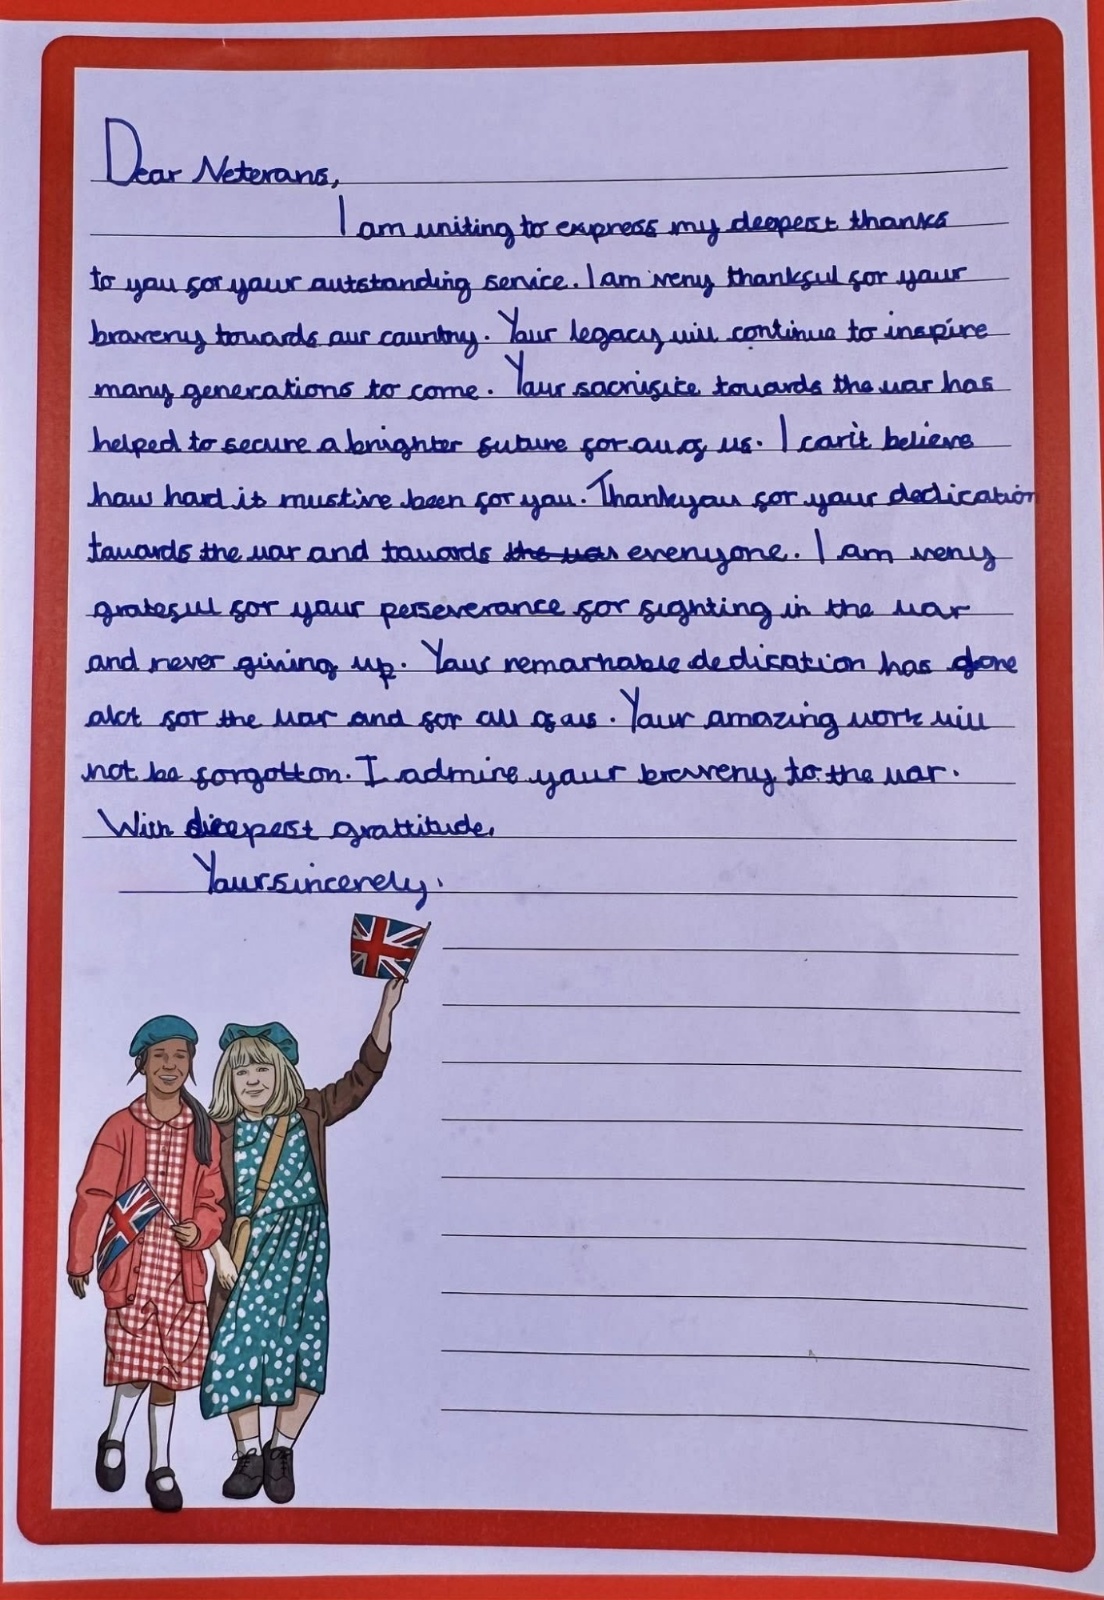 Dear Veterans,
I am writing to express my deepest thanks
to you for your outstanding service. I am very thankful for your
bravery towards our country. Your legacy will continue to inspire
many generations to come. Your sacrifice towards the war has
helped to secure a brighter future for all of us. I can't believe
how hard it must've been for you. Thankyou for your dedication
towards the war and towards the war everyone. I am very
grateful for your perseverance for fighting in the war
and never giving up. Your remarkable dedication has done
alot for the war and for all of us. Your amazing work will
not be forgotton. I admire your bravery to the war.
With deepest grattitude,
Yoursincerely.